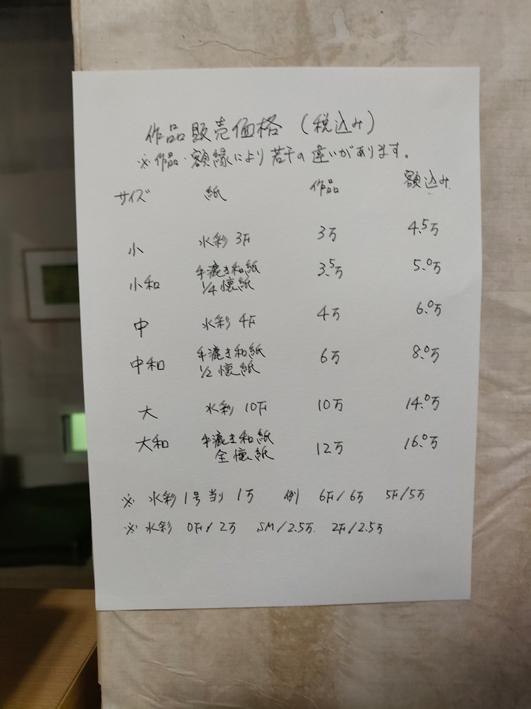 作品販売価格（税込み）
※ 作品・額縁により若干の違いがあります。
サイズ 紙 作品 額込み
小 水彩 3F 3万 4.5万
小和 手漉き和紙 1/4 懐紙 3.5万 5.0万
中 水彩 4F 4万 6.0万
中和 手漉き和紙 1/2 懐紙 6万 8.0万
大 水彩 10F 10万 14.0万
大和 手漉き和紙 全懐紙 12万 16.0万
※ 水彩 1号当り 1万 例 6F/6万 5F/5万
※ 水彩 0F/2万 SM/2.5万 2F/2.5万